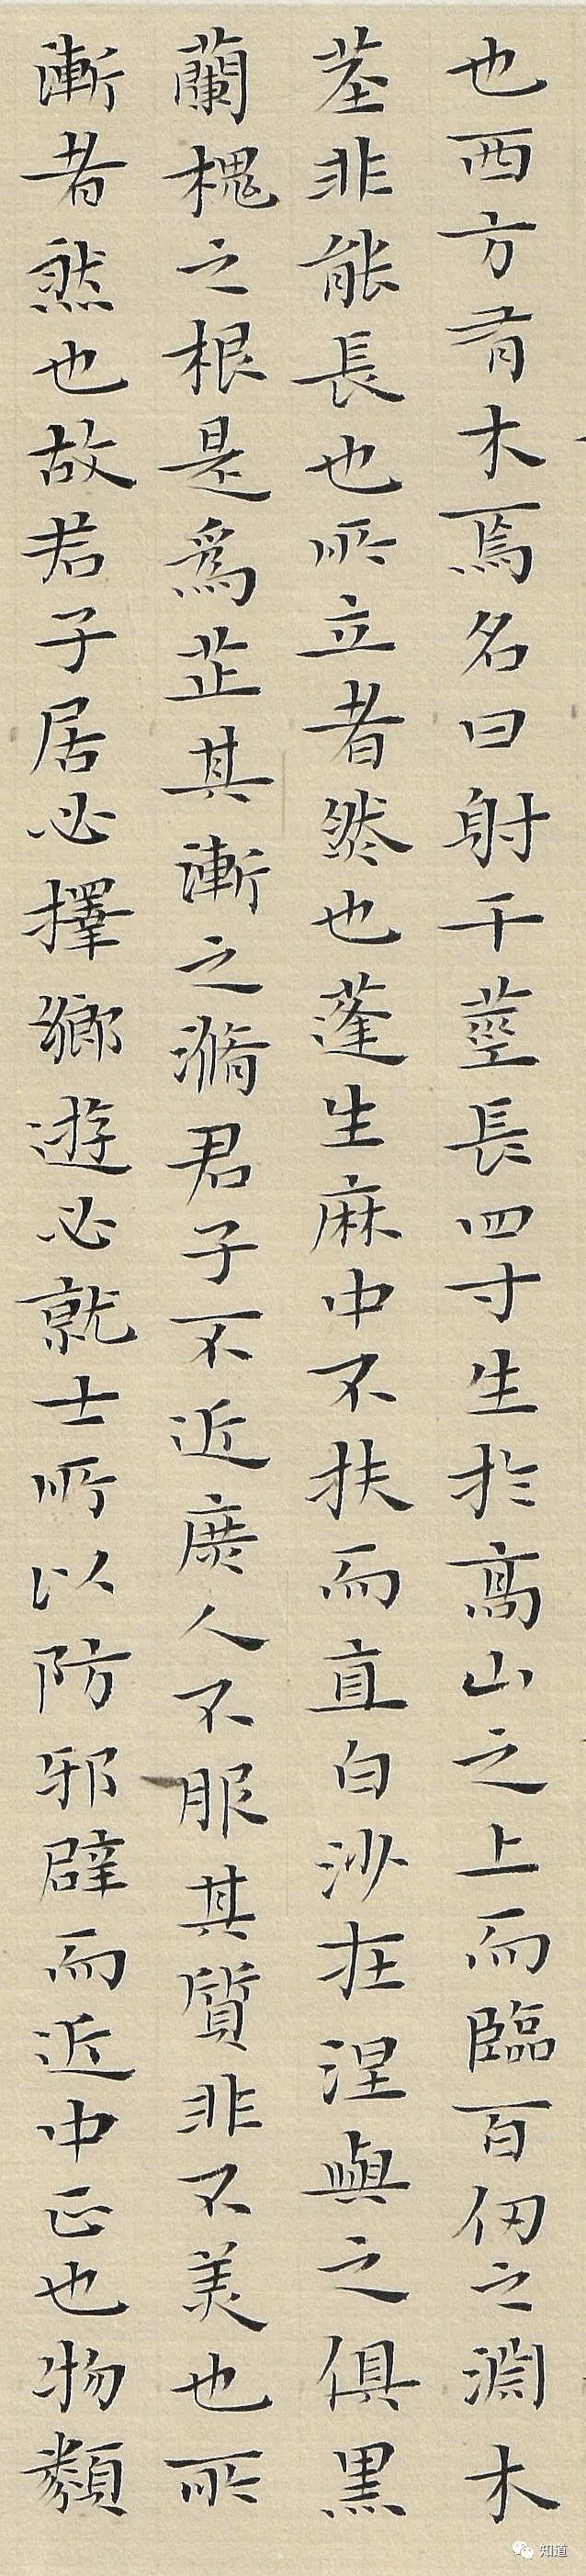 也西方有木焉名曰射干莖長四寸生於高山之上而臨百仞之淵木
莖非能長也所立者然也蓬生麻中不扶而直白沙在涅與之俱黑
蘭槐之根是爲芷其漸之滫君子不近庶人不服其質非不美也所
漸者然也故君子居必擇鄉遊必就士所以防邪辟而近中正也物類
知道